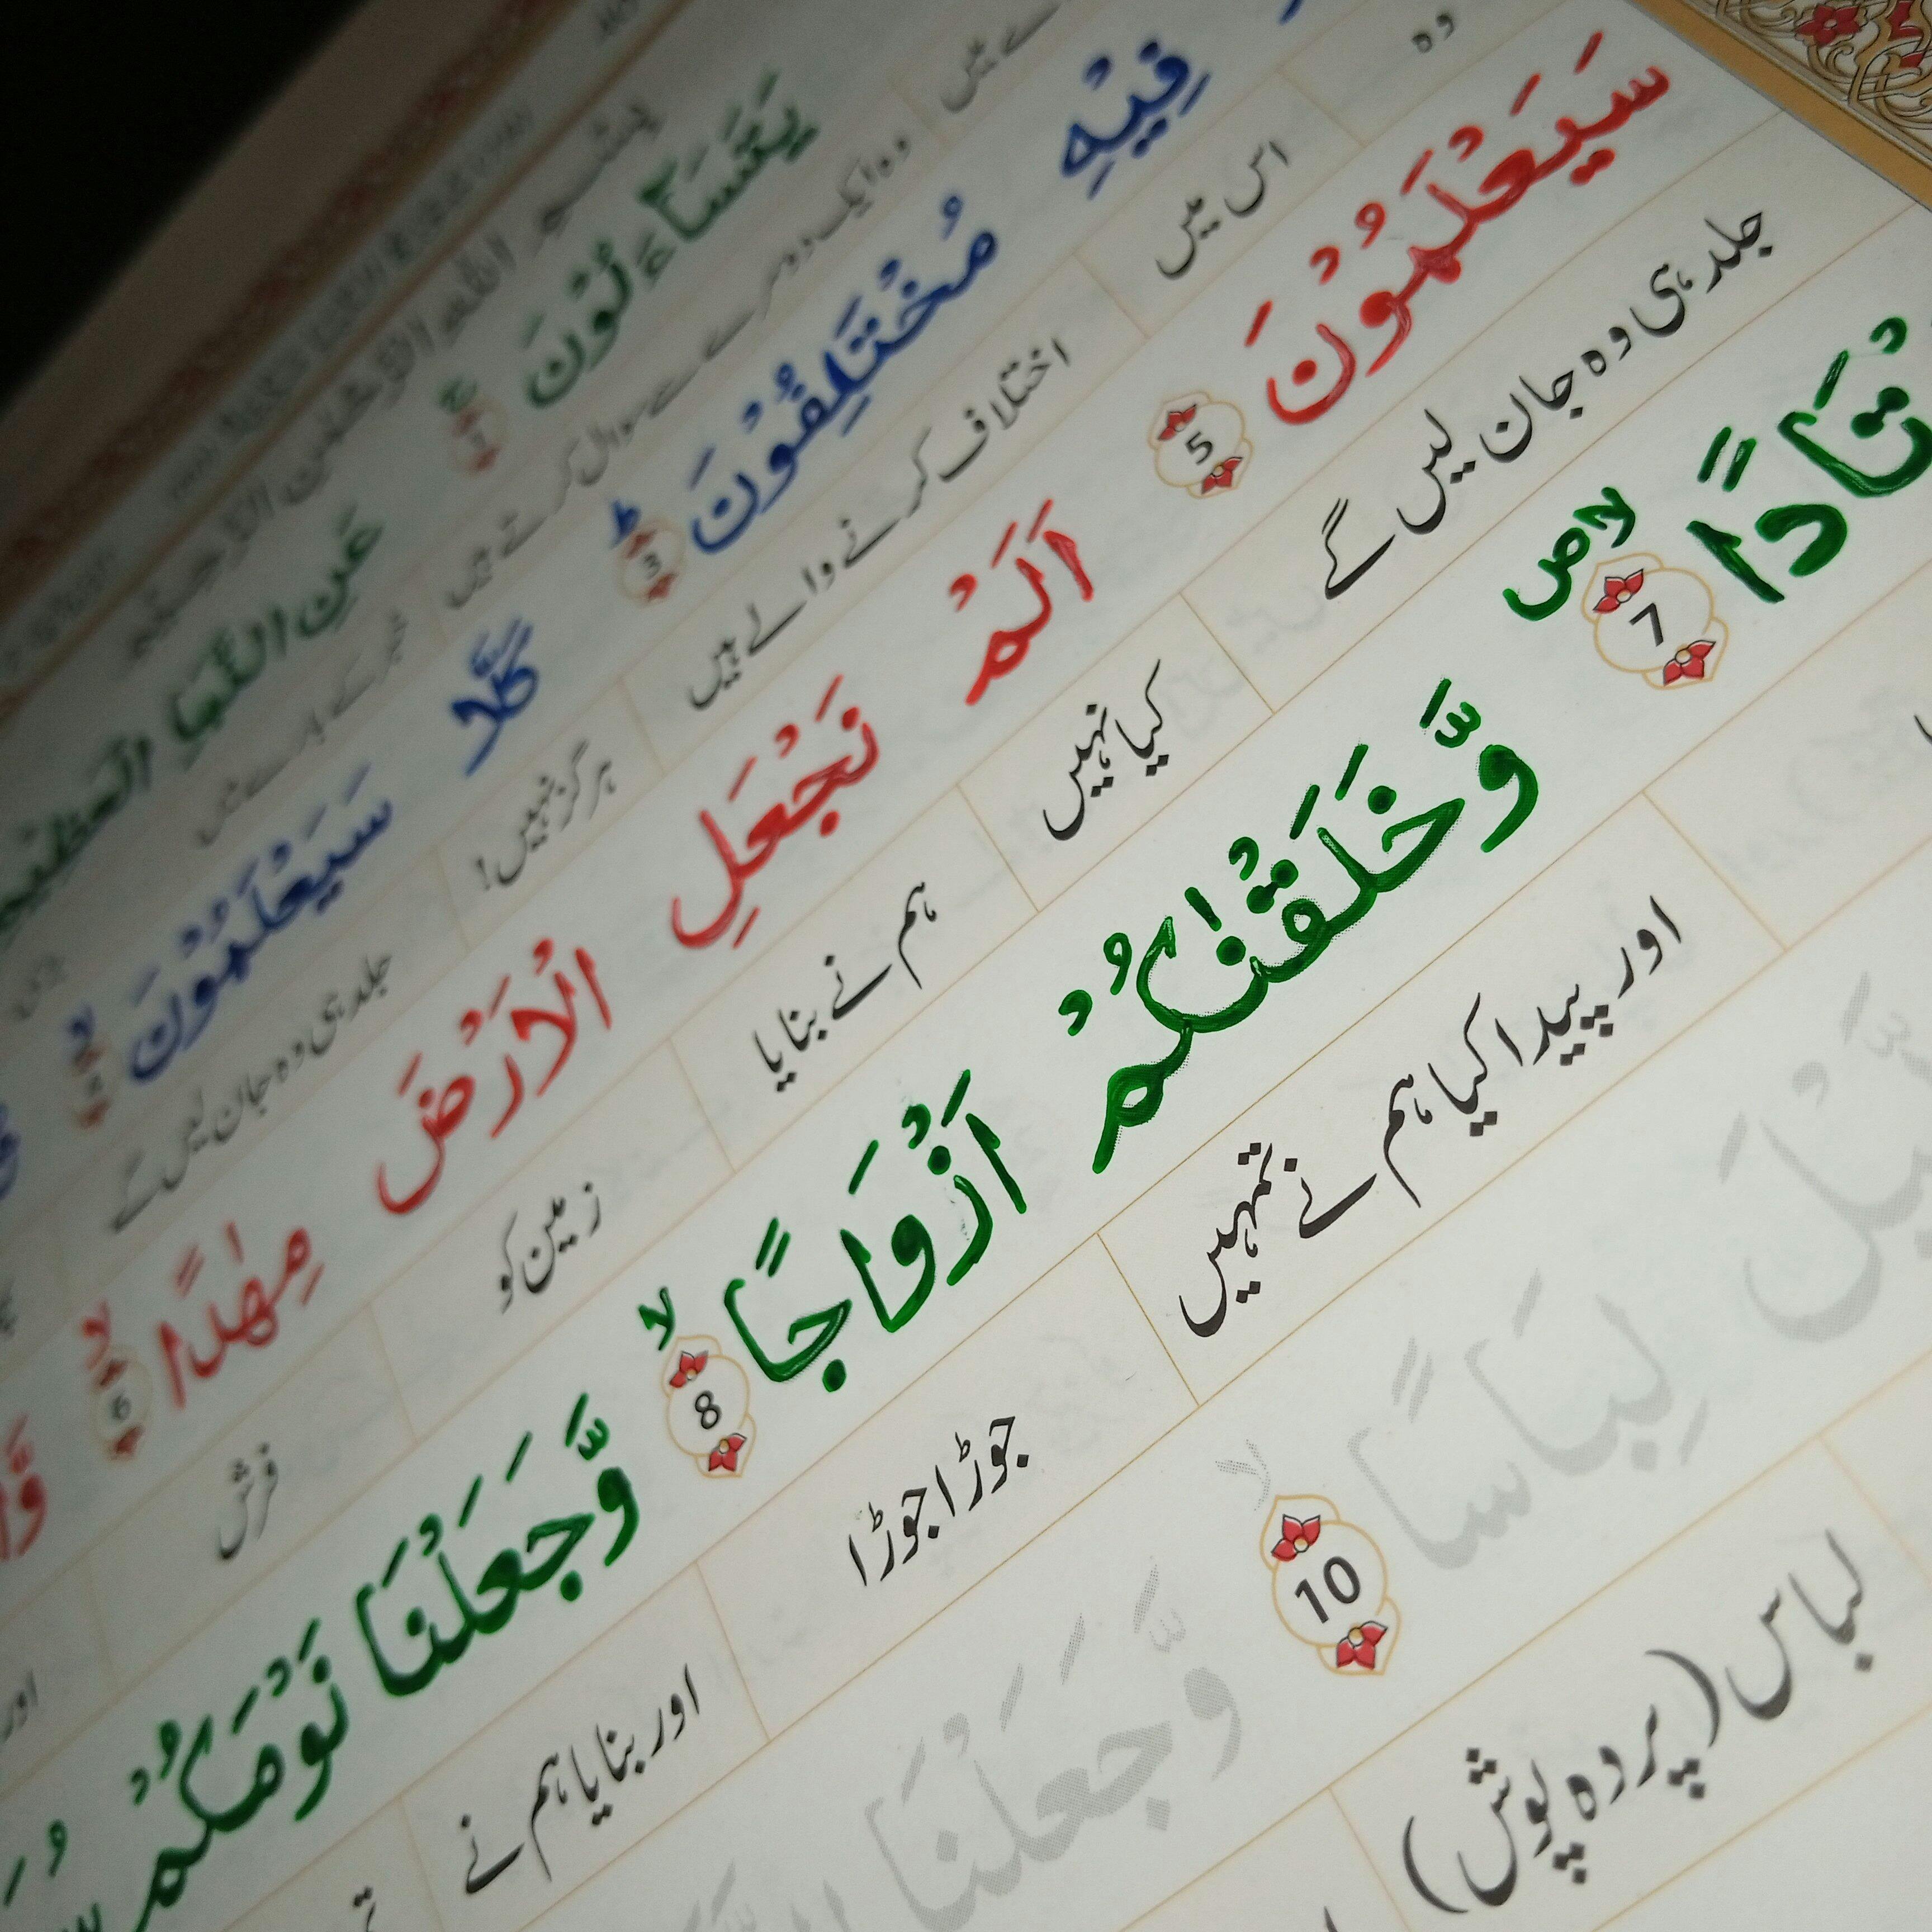 بِسْمِ اللهِ الرَّحْمٰنِ الرَّحِيْمِ
يَتَسَآءَلُوْنَ ۚ 1 عَنِ النَّبَاِ الْعَظِيْمِ
وہ ایک دوسرے سے سوال کرتے ہیں
فِيْهِ مُخْتَلِفُوْنَ ؕ 3 كَلَّا سَيَعْلَمُوْنَ ۙ 4
وہ اس میں اختلاف کرنے والے ہیں ہرگز نہیں! جلد ہی وہ جان لیں گے
سَيَعْلَمُوْنَ 5 اَلَمْ نَجْعَلِ الْاَرْضَ مِهٰدًا ۙ 6
جلد ہی وہ جان لیں گے کیا نہیں ہم نے بنایا زمین کو فرش اور
تَادًا 7 ۙص وَّخَلَقْنٰكُمْ اَزْوَاجًا ۙ 8 وَّجَعَلْنَا نَوْمَكُمْ
اور پیدا کیا ہم نے تمہیں جوڑا جوڑا اور بنایا ہم نے
لِبَاسًا ۙ 10 وَّجَعَلْنَا
لباس (پردہ پوش)